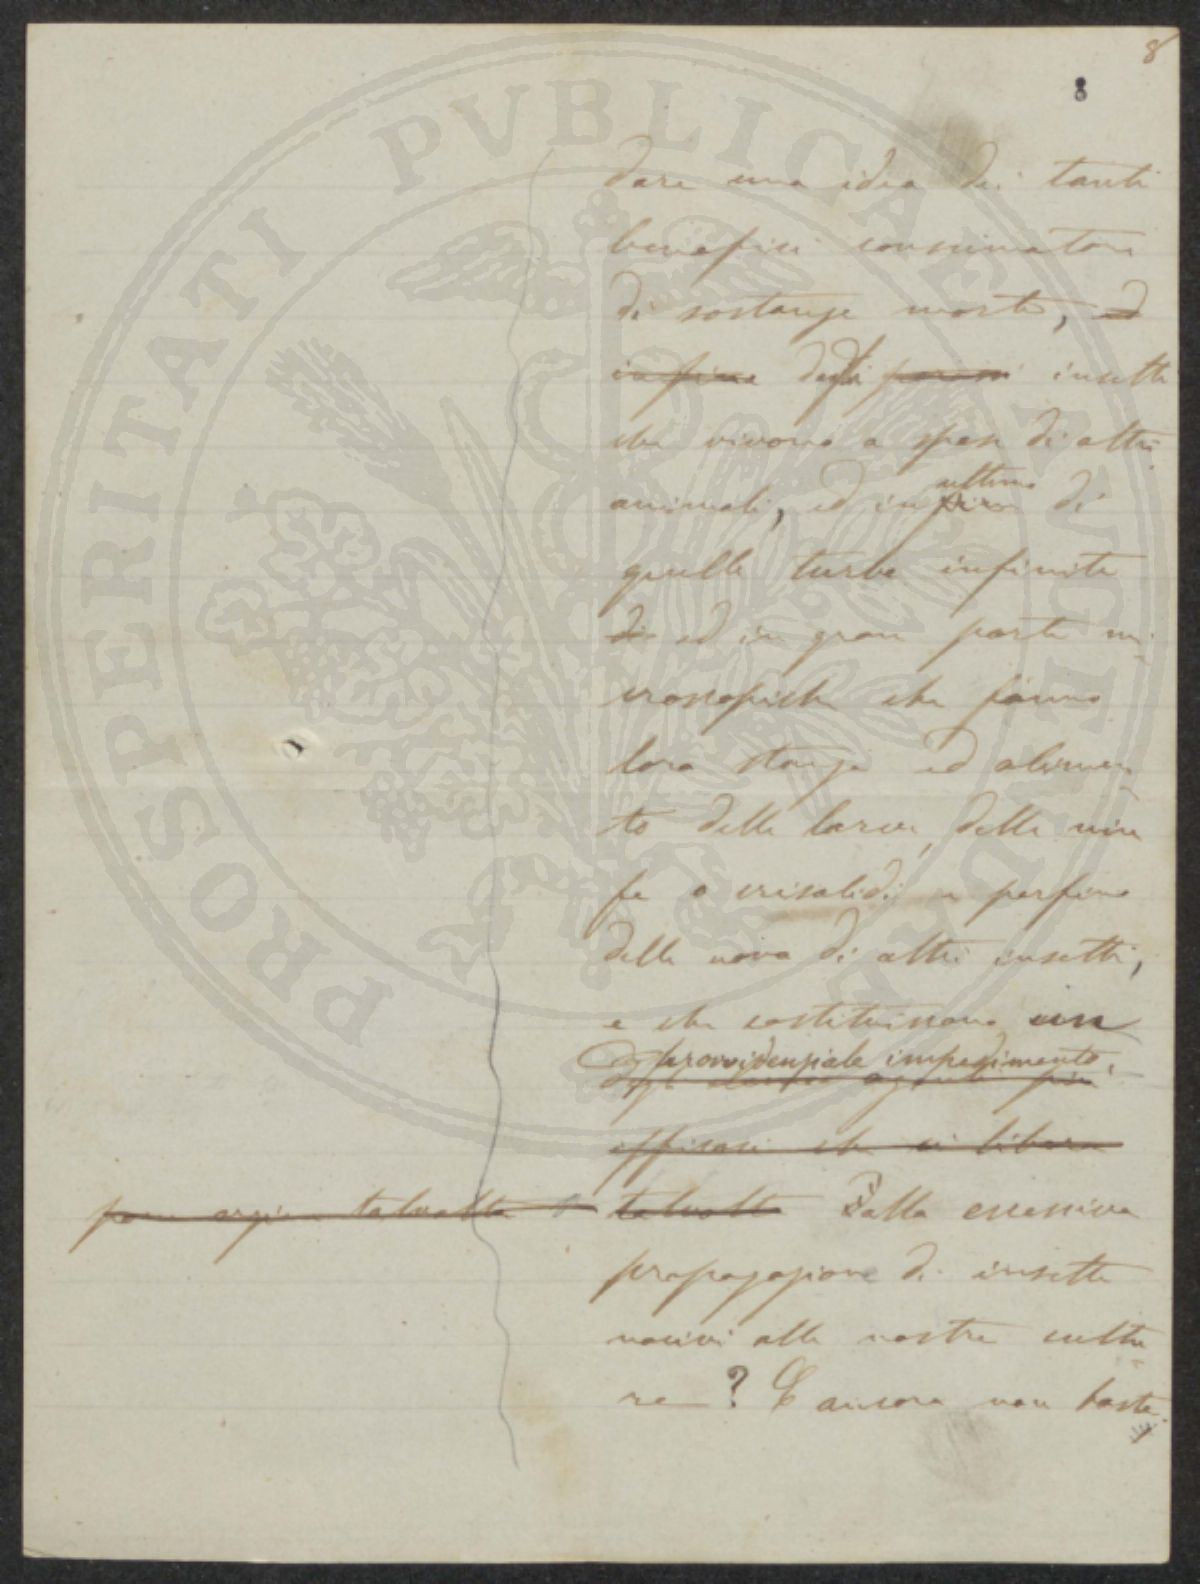 8
8
dare una idea dei tanti
benefici consumatori
di sostanze morte, ed
infine degli insetti
che vivono a spese di altri
animali, ed in ultimo di
quelle turbe infinite
di ed in gran parte mi-
croscopiche che fanno
loro stanza ed alimen-
to delle larve, delle nin
fe o crisalidi e perfino
delle uova di altri insetti,
e che costituiscono un
provvidenziale impedimento,
efficaci che ci libera
talvolta talvolta Dalla eccessiva
propagazione di insetti
nocivi alle nostre cultu
re? E ancora non baste
PROSPERITATI PVBLICAE AVGENDAE